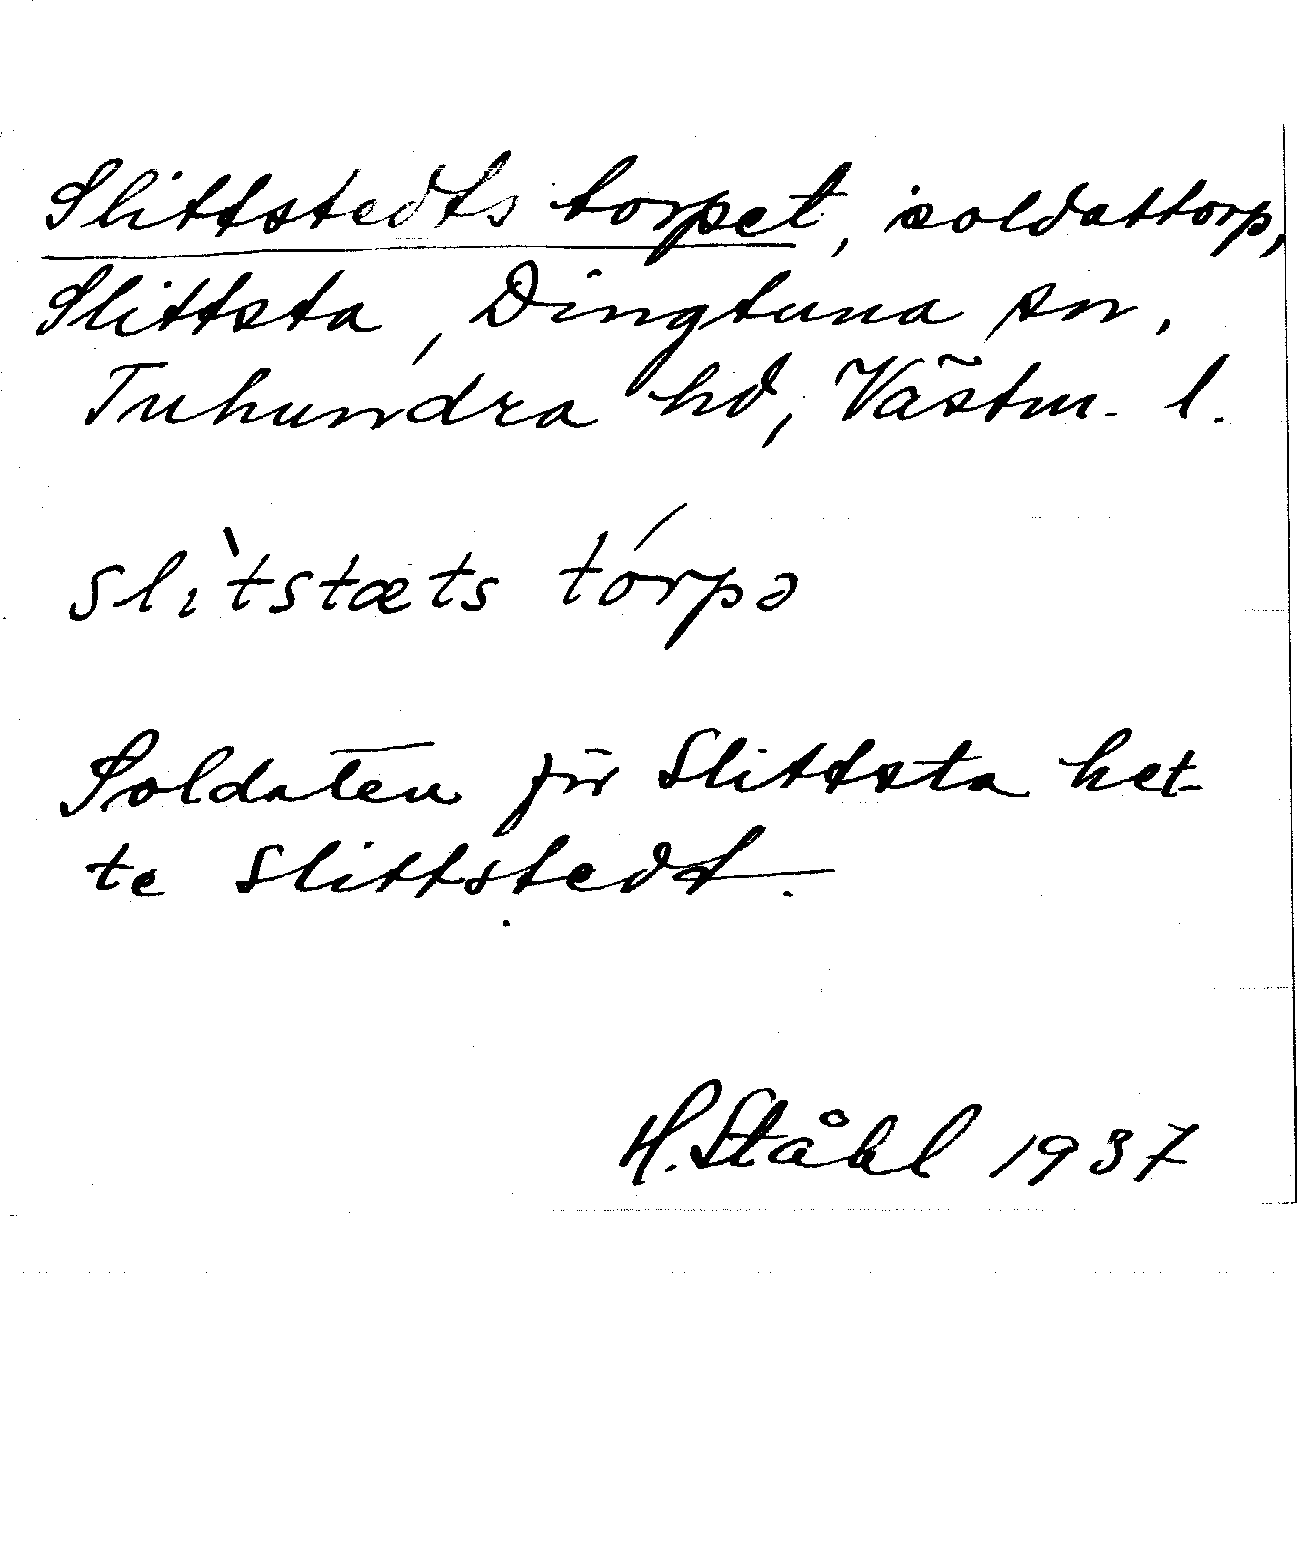 Slittstedts torpet, soldattorp,
Slittsta, Dingtuna sn,
Tuhundra hd, Västm. l.
slɩ̀tstæts tórpə
Soldaten för Slittsta het-
te Slittstedt.
H. Ståhl 1937